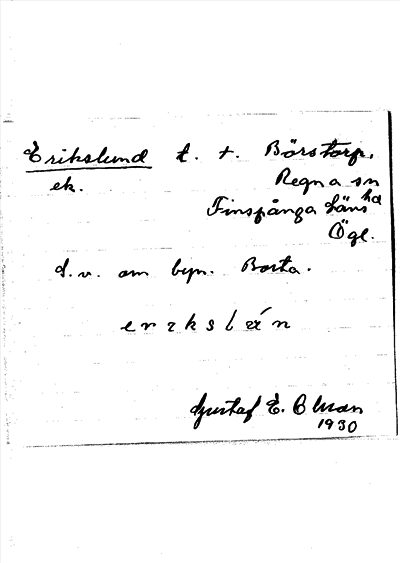 Erikslund t. t. Börstorp.
ek. Regna sn
Finspånga läns hd
Ögl.
S.v. om byn. Borta.
Gustaf E. Olsson
1930